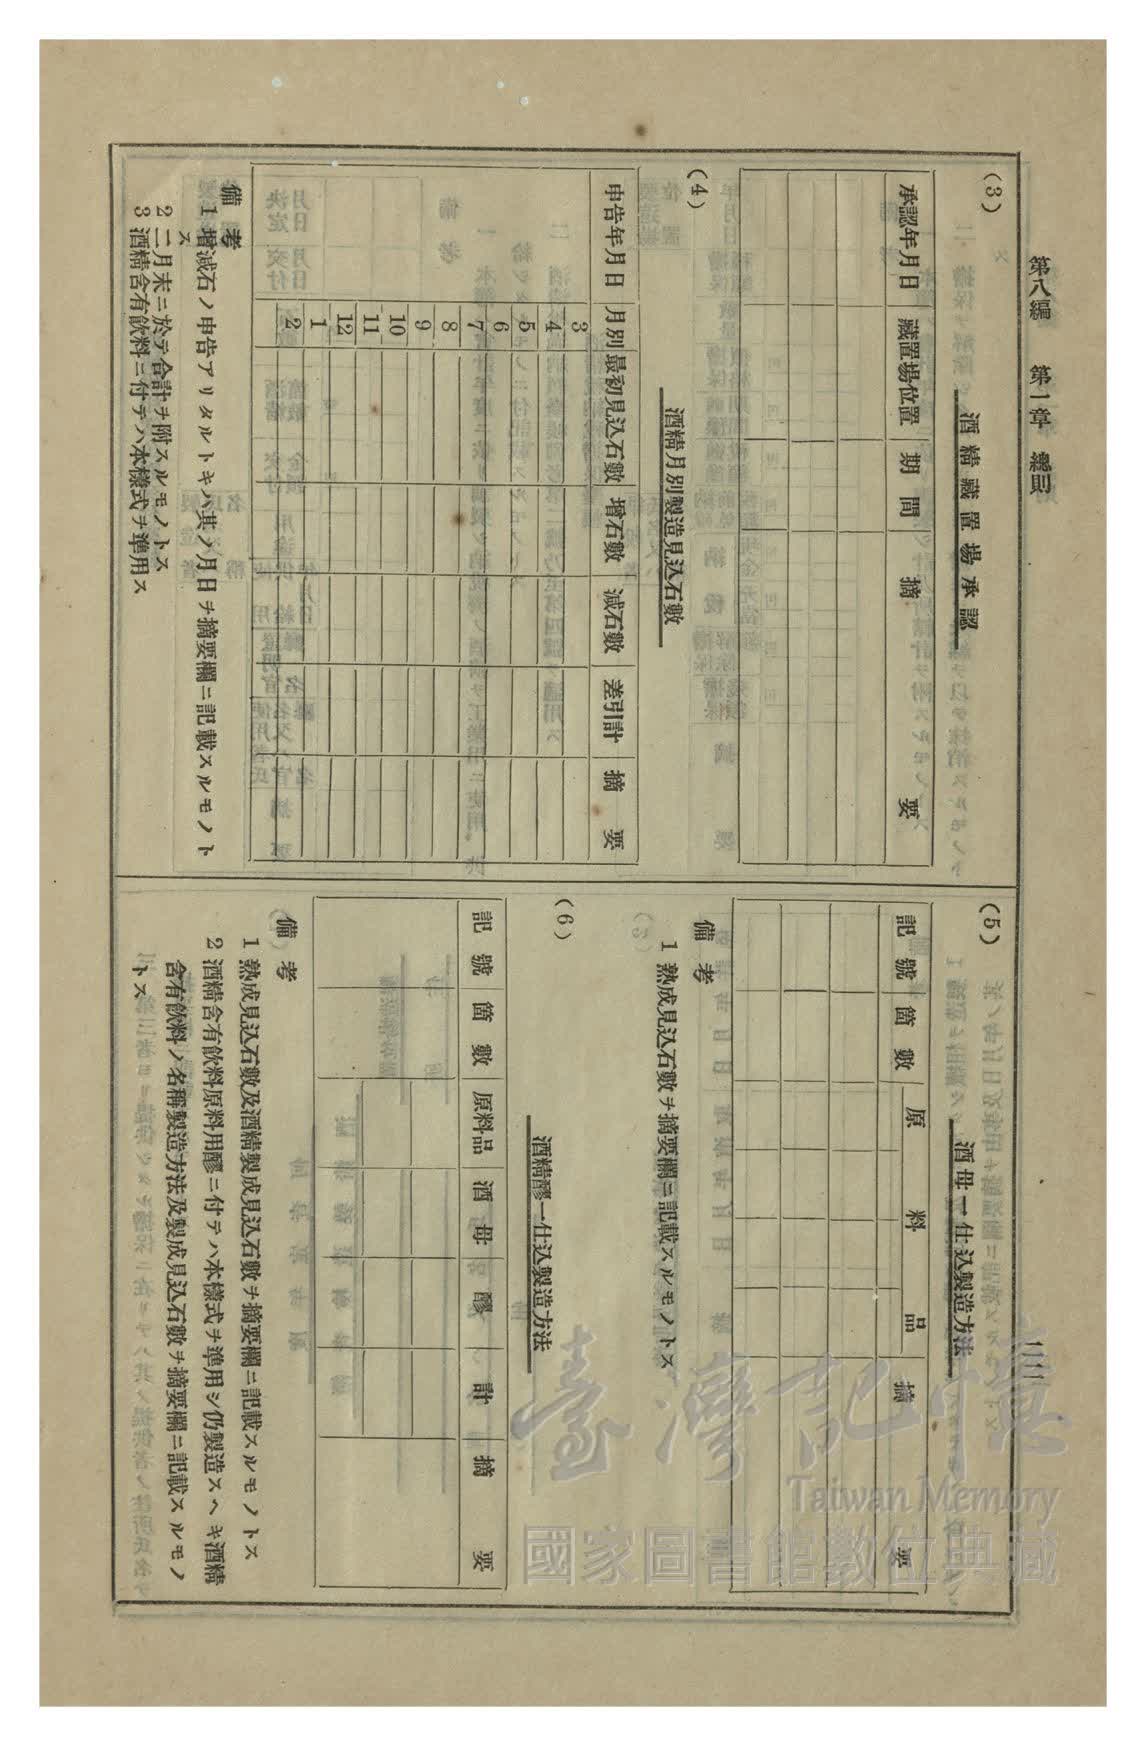 第八編　第一章　總則
一一一
(3)
酒精藏置場承認
承認年月日　藏置場位置　期間　摘要
(4)
酒精月別製造見込石數
申告年月日　月別　最初見込石數　增石數　減石數　差引計　摘要
3
4
5
6
7
8
9
10
11
12
1
2
備考
1 增減石ノ申告アリタルトキハ其ノ月日ヲ摘要欄ニ記載スルモノト
ス
2 二月末ニ於テ合計ヲ附スルモノトス
3 酒精含有飮料ニ付テハ本樣式ヲ準用ス
(5)
酒母一仕込製造方法
記號　箇數　原料品　摘要
備考
1 熟成見込石數ヲ摘要欄ニ記載スルモノトス
(6)
酒精醪一仕込製造方法
記號　箇數　原料品　酒母　醪　計　摘要
備考
1 熟成見込石數及酒精製成見込石數ヲ摘要欄ニ記載スルモノトス
2 酒精含有飮料原料用醪ニ付テハ本樣式ヲ準用シ仍製造スヘキ酒精
含有飮料ノ名稱製造方法及製成見込石數ヲ摘要欄ニ記載スルモノ
トス
臺灣記憶
Taiwan Memory
國家圖書館數位典藏